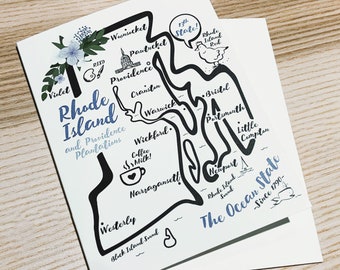 Wunucket
Pawtucket
13th State!
Rhode
Island
Red
RISD
Providence
Violet
Cranston
Rhode
Island
and Providence
Plantations
Warwick
Bristol
Portsmouth
Wickford
Little
Compton
Coffee
Milk!
Newport
Narragansett
Rhode Island
Sound
The Ocean State
-Since 1790-
Westerly
Block Island Sound